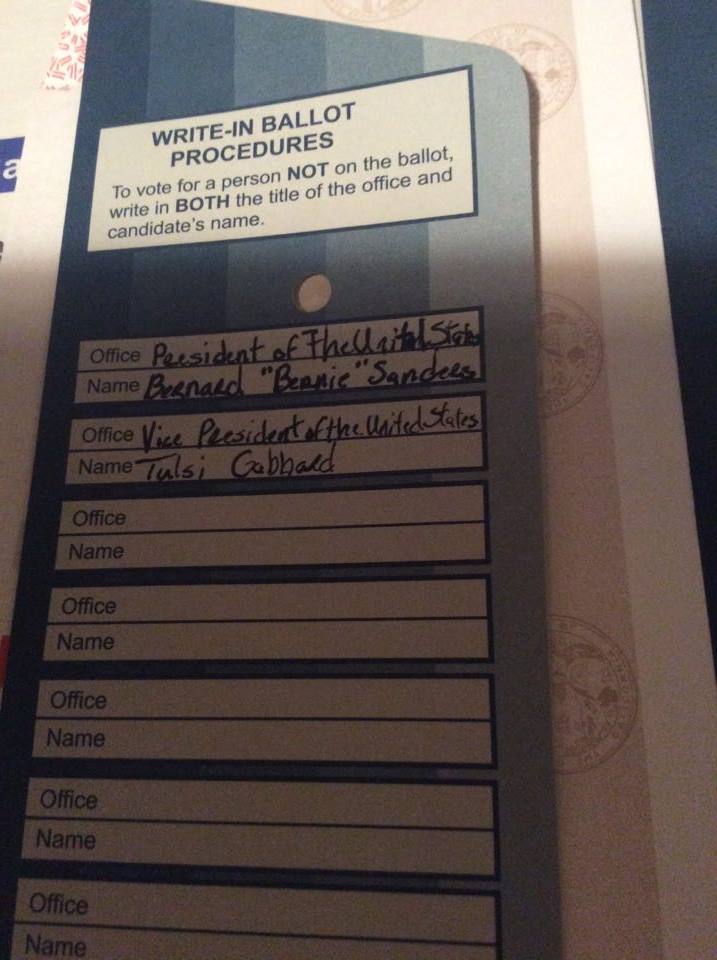 WRITE-IN BALLOT
PROCEDURES
To vote for a person NOT on the ballot,
write in BOTH the title of the office and
candidate's name.
Office President of The United States
Name Bernard "Bernie" Sanders
Office Vice President of the United States
Name Tulsi Gabbard
Office
Name
Office
Name
Office
Name
Office
Name
Office
Name